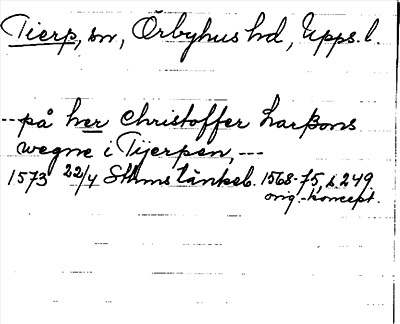 Tierp, sn, Örbyhus hd, Upps. l.
--på her Christoffer Larßons
wegne i Tijerpen, ---
1573 22/4 Sthms tänkeb. 1568-75, s. 249.
orig.-koncept.